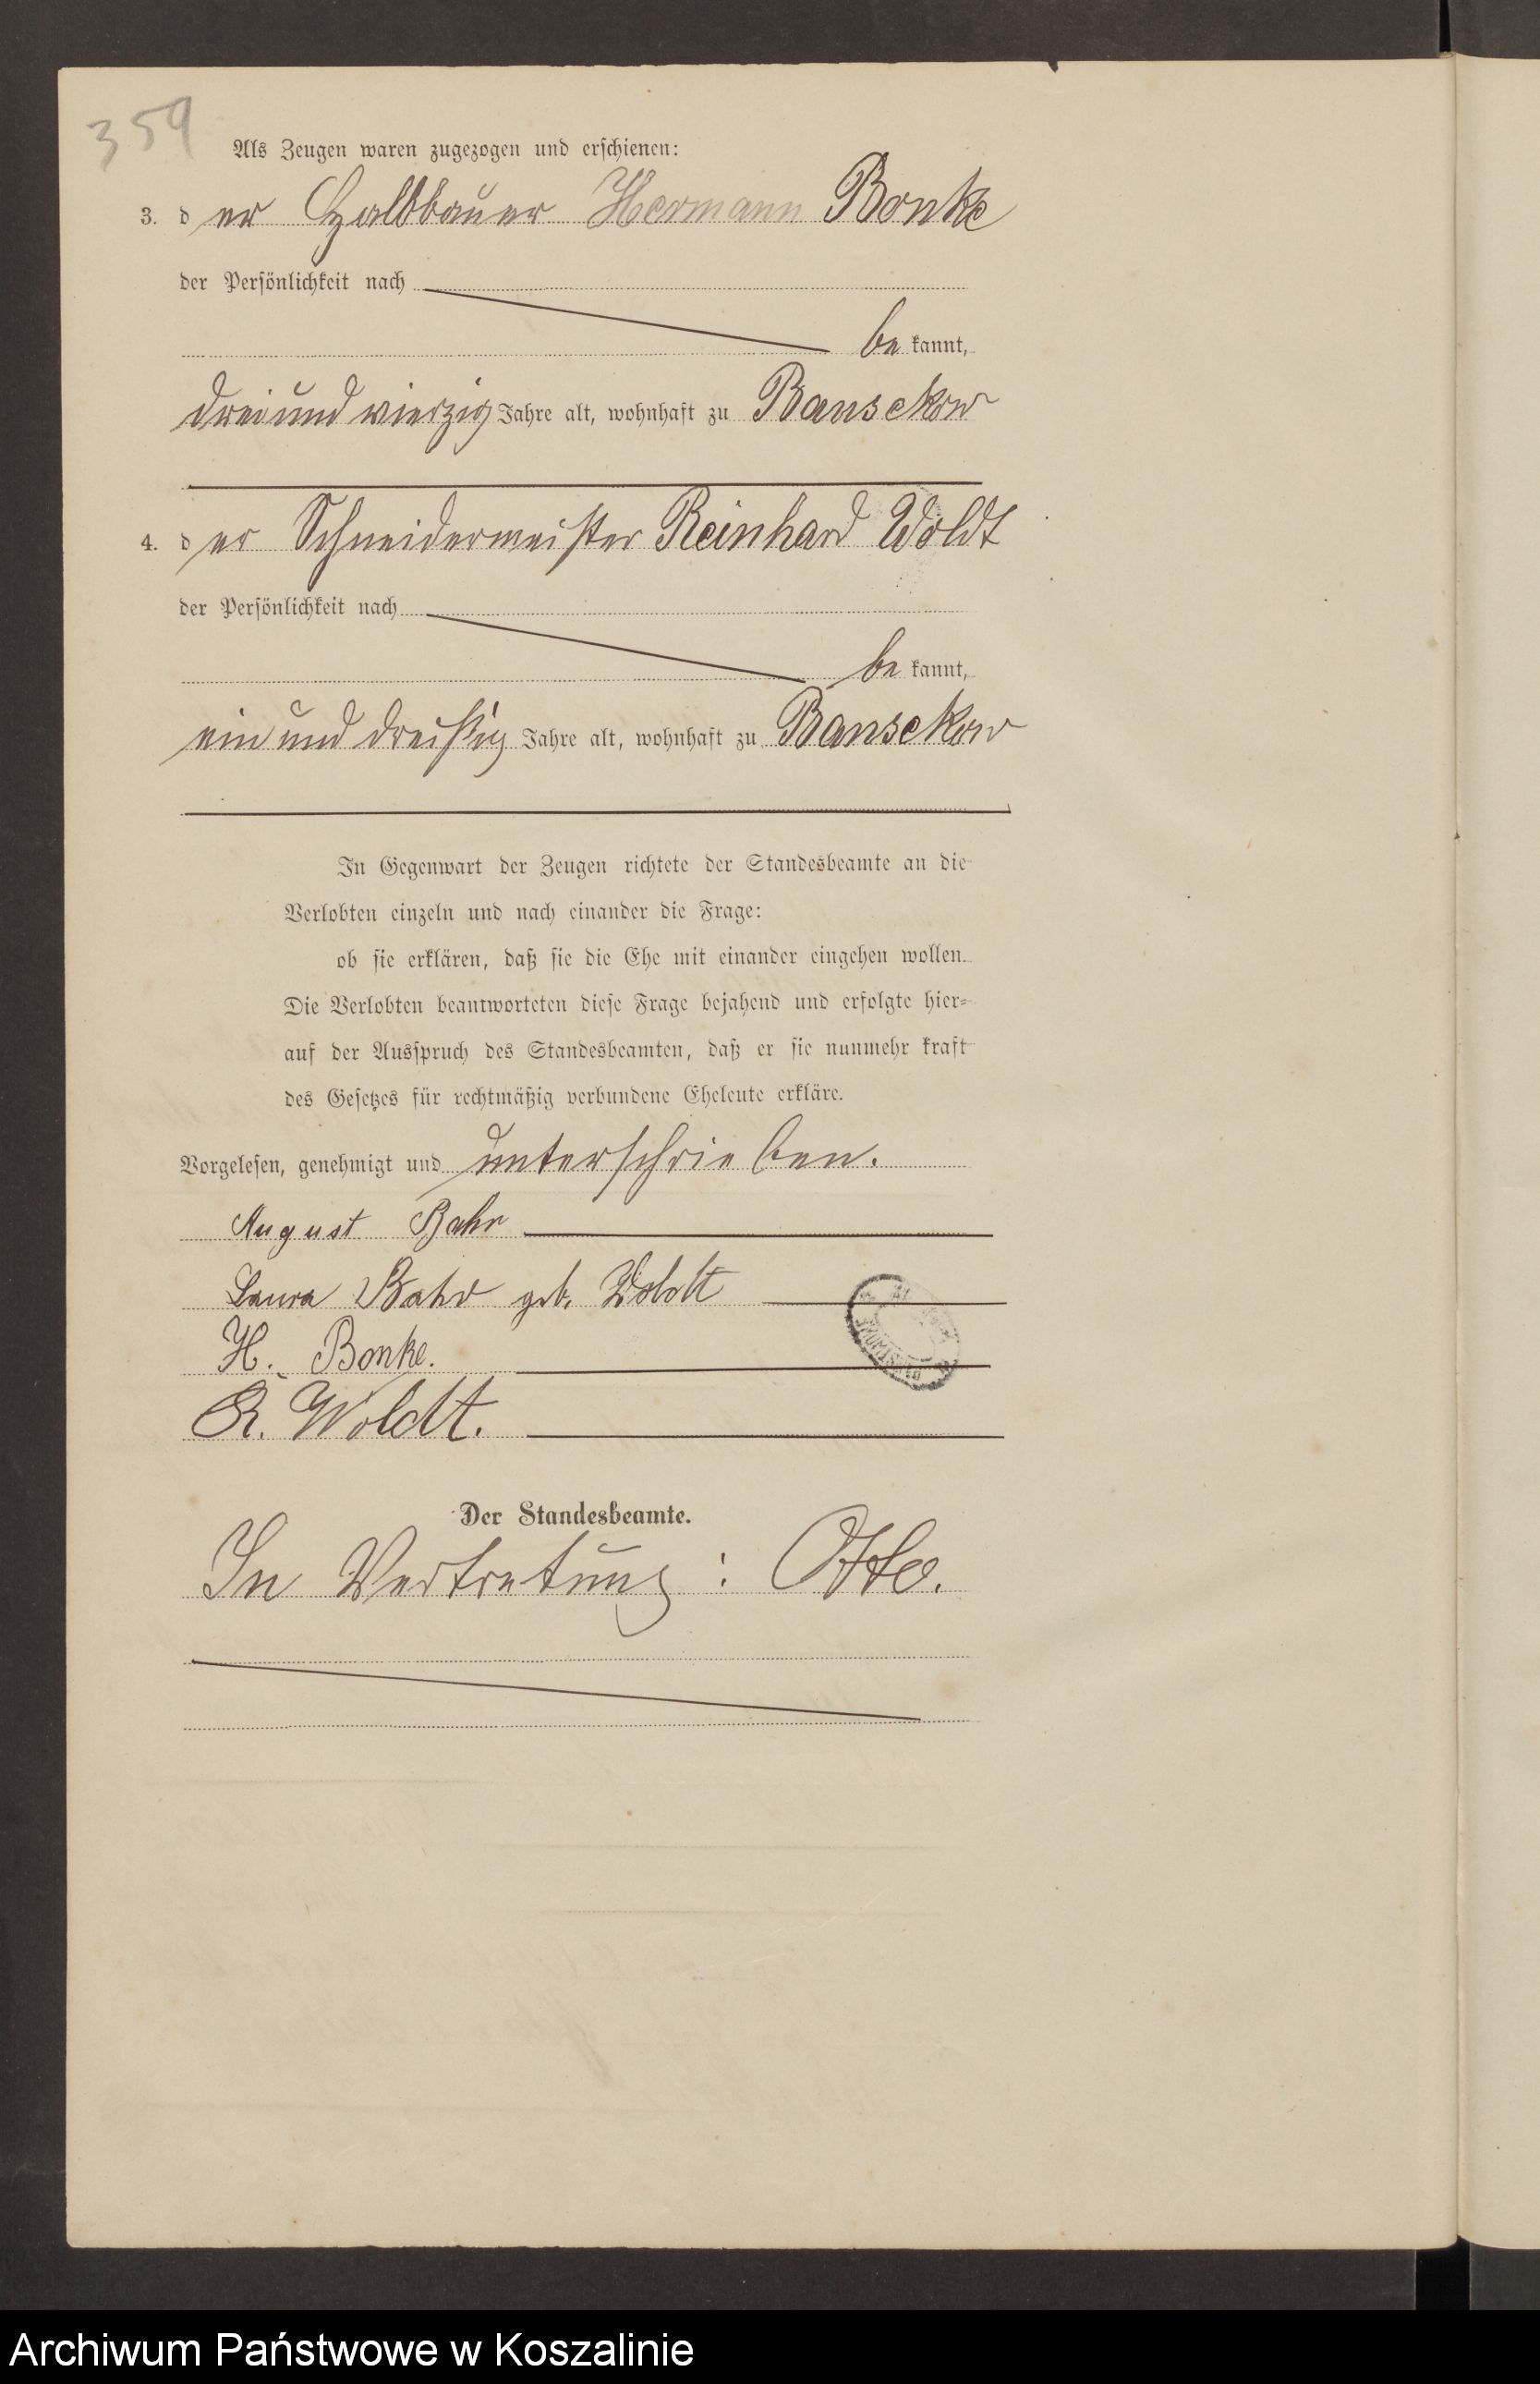 359
Als Zeugen waren zugezogen und erschienen:
3. der Halbbauer Hermann Bonke
der Persönlichkeit nach
bekannt,
dreiundvierzig Jahre alt, wohnhaft zu Bansekow
4. der Schneidermeister Reinhard Woldt
der Persönlichkeit nach
bekannt,
einunddreißig Jahre alt, wohnhaft zu Bansekow
In Gegenwart der Zeugen richtete der Standesbeamte an die
Verlobten einzeln und nach einander die Frage:
ob sie erklären, daß sie die Ehe mit einander eingehen wollen.
Die Verlobten beantworteten diese Frage bejahend und erfolgte hier-
auf der Ausspruch des Standesbeamten, daß er sie nunmehr kraft
des Gesetzes für rechtmäßig verbundene Eheleute erkläre.
Vorgelesen, genehmigt und unterschrieben.
August Bahr
Laura Bahr geb. Woldt
H. Bonke.
R. Woldt.
Der Standesbeamte.
In Vertretung: Otto.
Archiwum Państwowe w Koszalinie